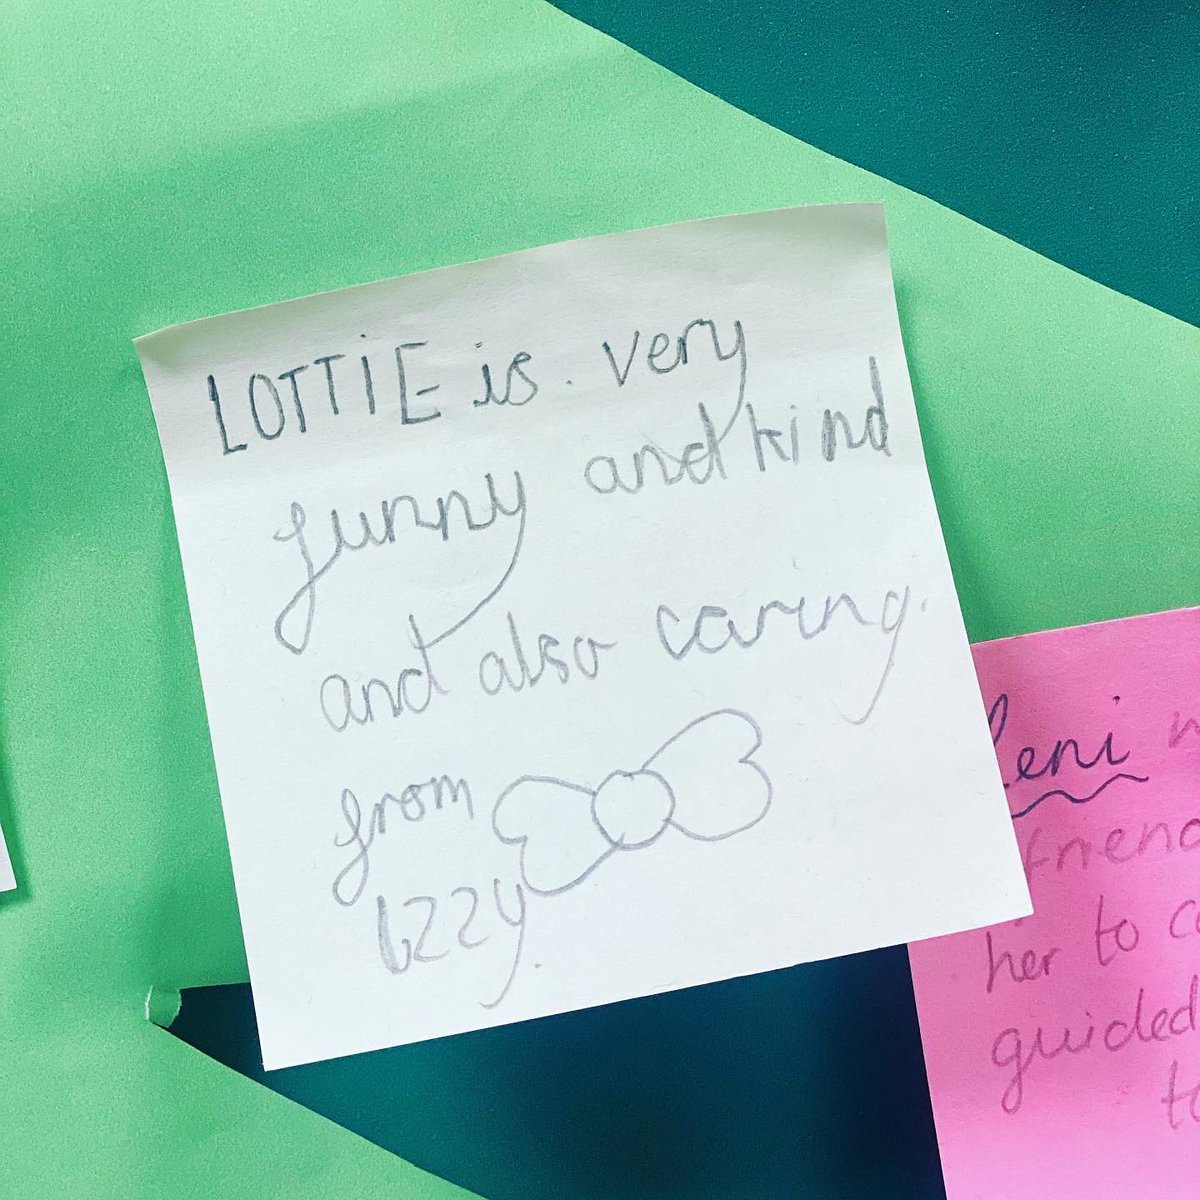 LOTTiE is. very
funny and kind
and also caring.
from
Izzy.
Leni
friend
her to
guided